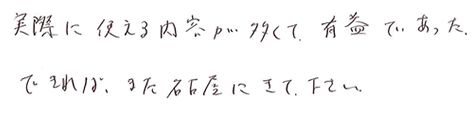 実際に使える内容が多くて、有益であった。
できれば、また名古屋にきて下さい。